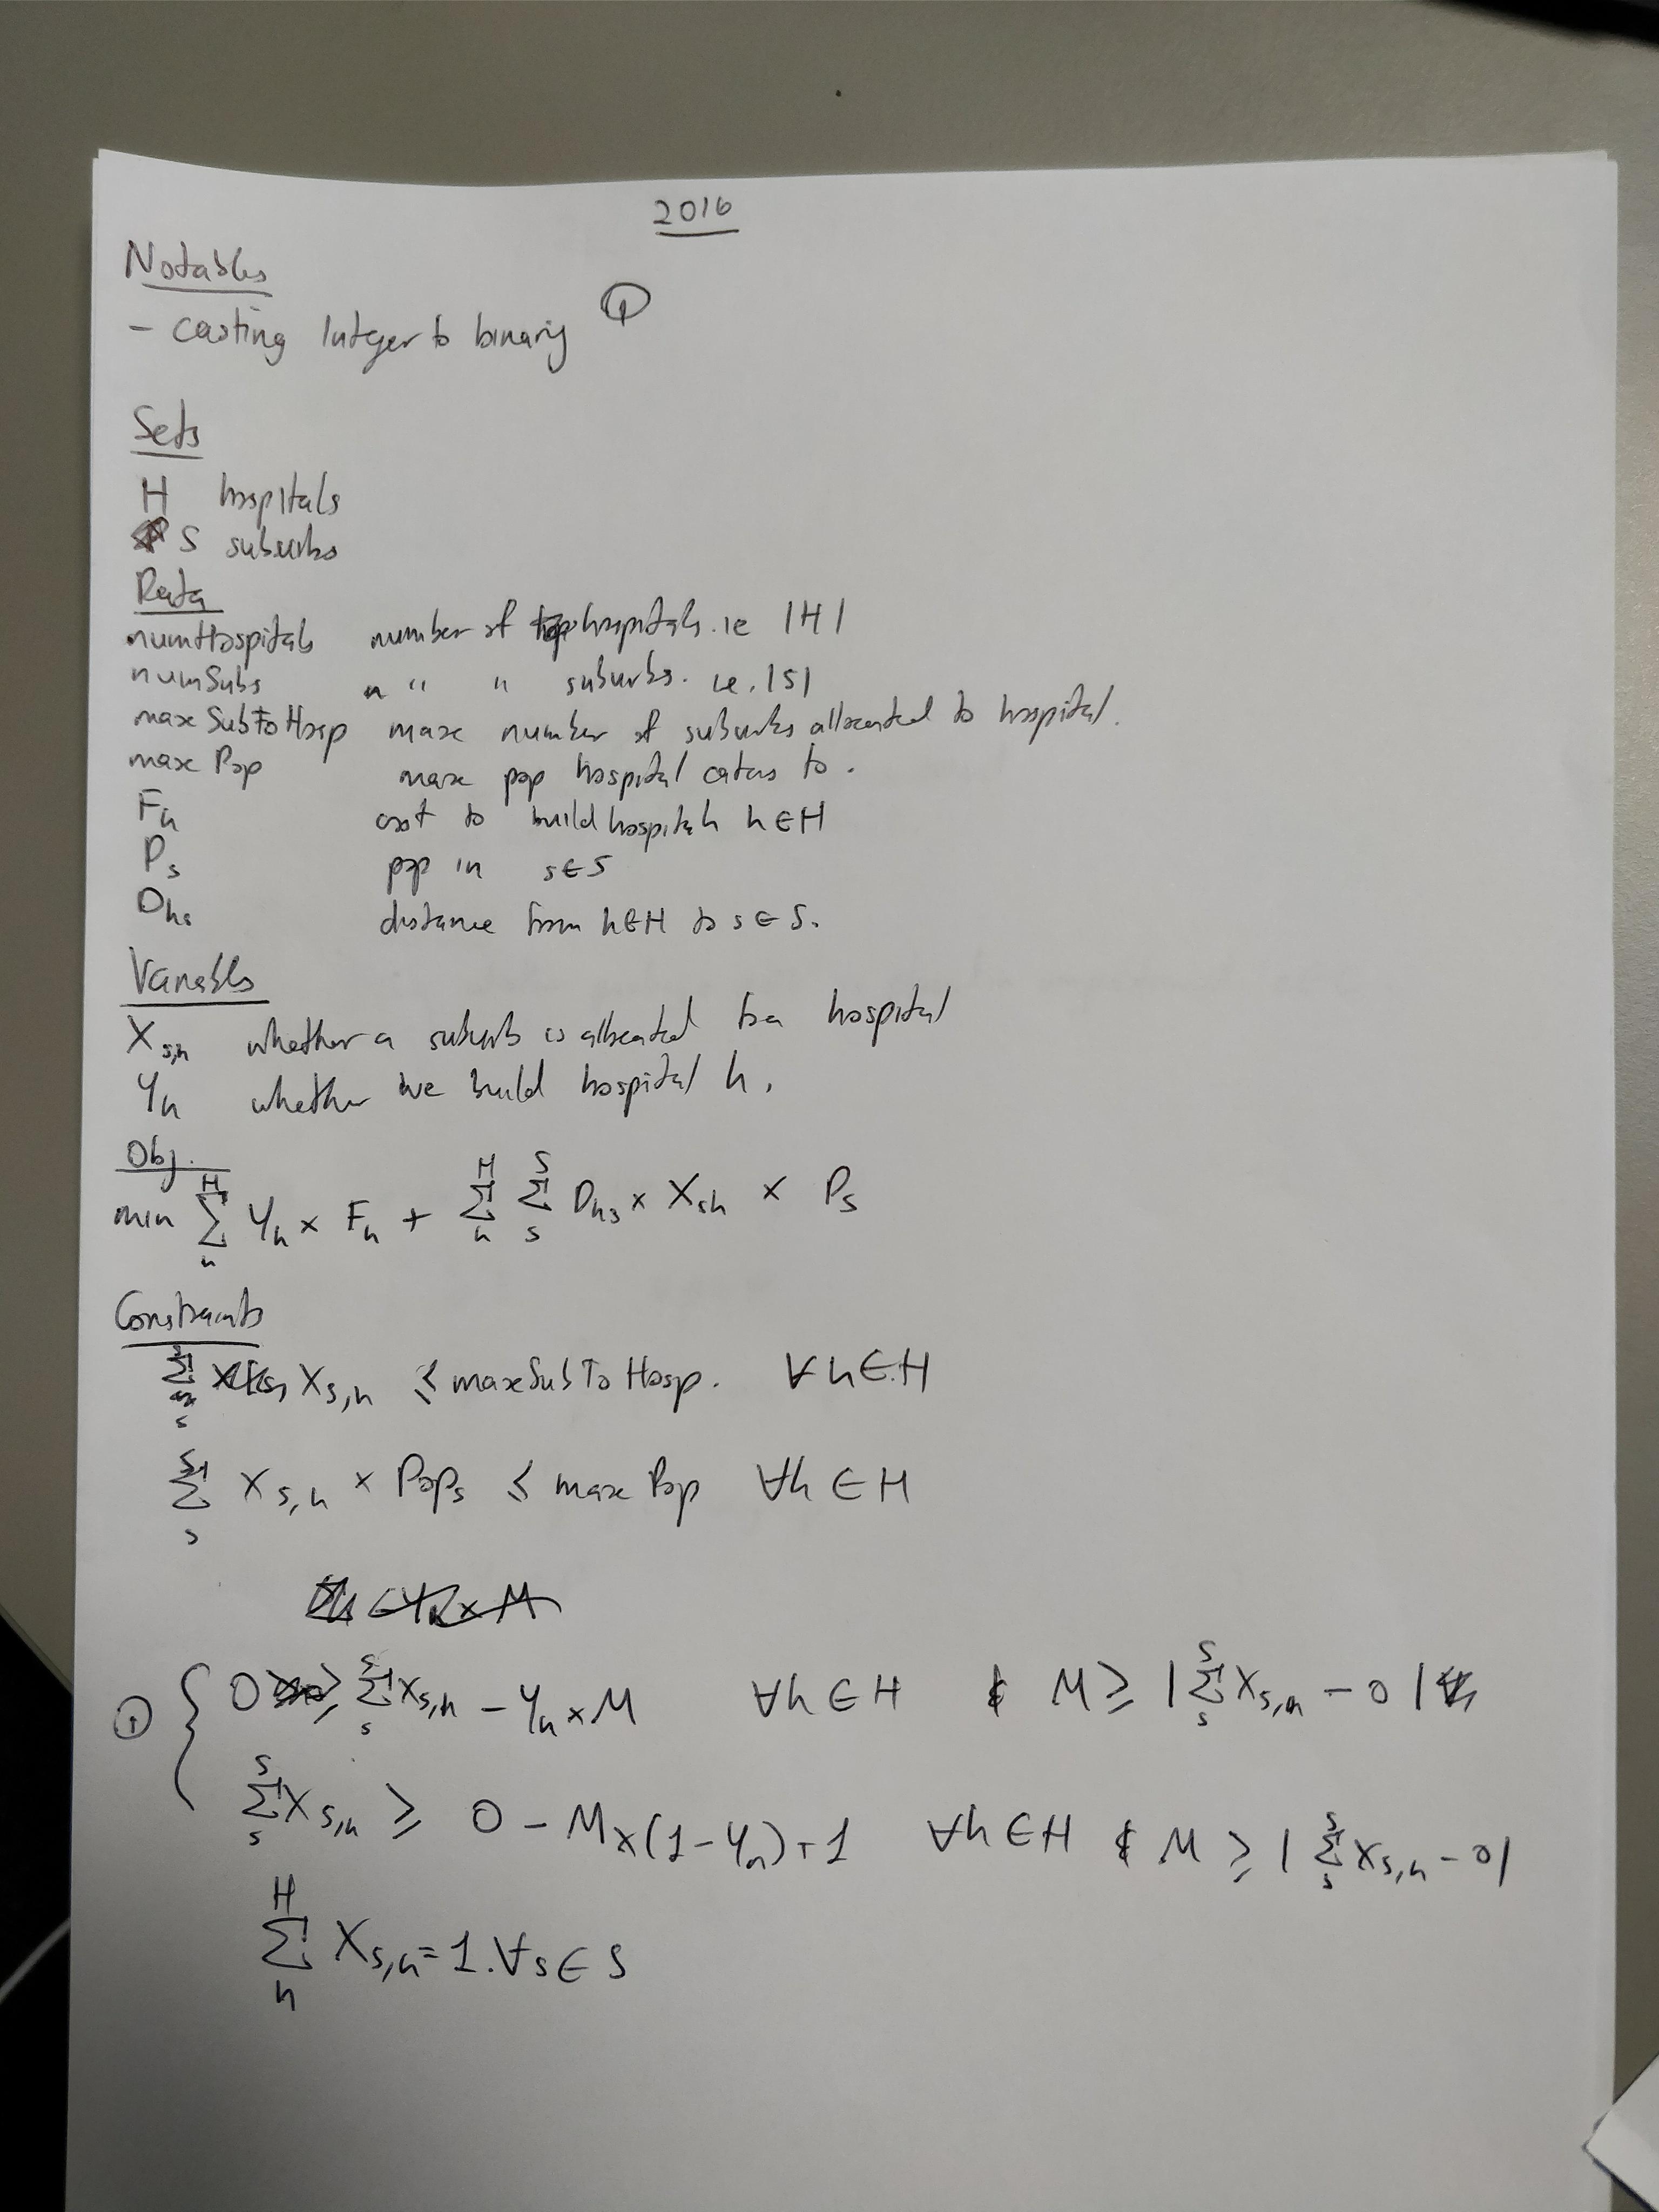 2016
Notables
- casting Integer to binary ①
Sets
H hospitals
S suburbs
Data
numHospitals number of hospitals. ie |H|
numSubs " " " suburbs. ie. |S|
maxSubToHosp max number of suburbs allocated to hospital.
max Pop max pop hospital caters to.
Fh cost to build hospital h h∈H
Ps pop in s∈S
Dhs distance from h∈H to s∈S.
Variables
Xs,h whether a suburb is allocated to a hospital
Yh whether we build hospital h.
Obj.
min H∑h Yh × Fh + H∑h S∑s Dhs × Xsh × Ps
Constraints
S∑s Xs,h ≤ maxSubToHosp. ∀h∈H
S∑s Xs,h × Pops ≤ max Pop ∀h ∈ H
① { 0 ≥ S∑s Xs,h - Yh × M ∀h ∈ H & M ≥ | S∑s Xs,h - 0 |
S∑s Xs,h ≥ 0 - M×(1-Yh)+1 ∀h ∈ H & M ≥ | S∑s Xs,h - 0 |
H∑h Xs,h = 1. ∀s ∈ S